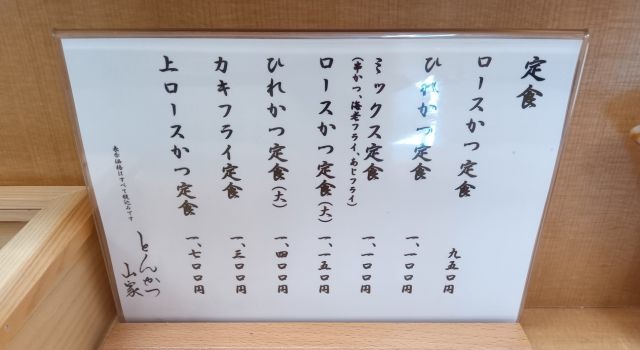 定食
ロースかつ定食 九五〇円
ひれかつ定食 一、一〇〇円
ミックス定食 一、一〇〇円
(串かつ、海老フライ、あじフライ)
ロースかつ定食(大) 一、一五〇円
ひれかつ定食(大) 一、四〇〇円
カキフライ定食 一、三〇〇円
上ロースかつ定食 一、七〇〇円
表示価格はすべて税込みです
とんかつ
山家